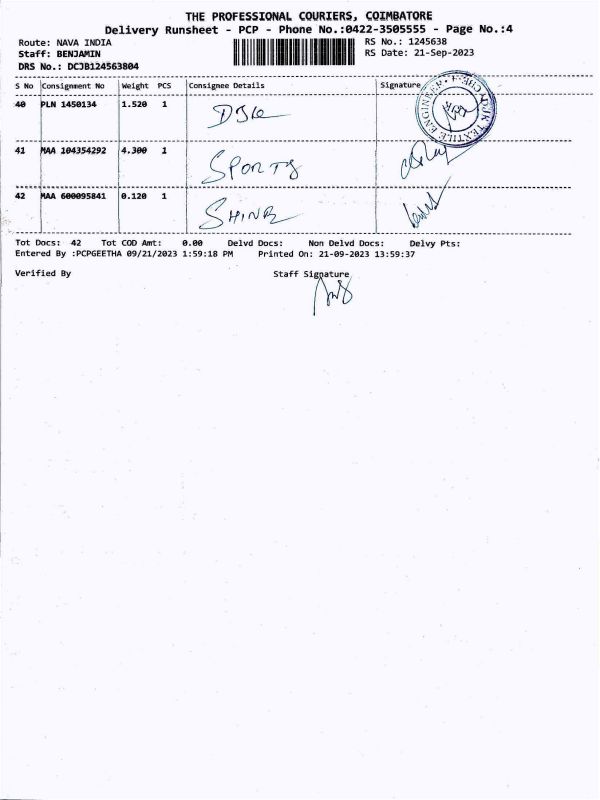 THE PROFESSIONAL COURIERS, COIMBATORE
Delivery Runsheet - PCP - Phone No.:0422-3505555 - Page No.:4
Route: NAVA INDIA RS No.: 1245638
Staff: BENJAMIN RS Date: 21-Sep-2023
DRS No.: DCJB124563804
S No Consignment No Weight PCS Consignee Details Signature
40 PLN 1450134 1.520 1
41 MAA 104354292 4.300 1 SPORTS
42 MAA 600095841 0.120 1
Tot Docs: 42 Tot COD Amt: 0.00 Delvd Docs: Non Delvd Docs: Delvy Pts:
Entered By :PCPGEETHA 09/21/2023 1:59:18 PM Printed On: 21-09-2023 13:59:37
Verified By Staff Signature
TEXTILE ENGINEER